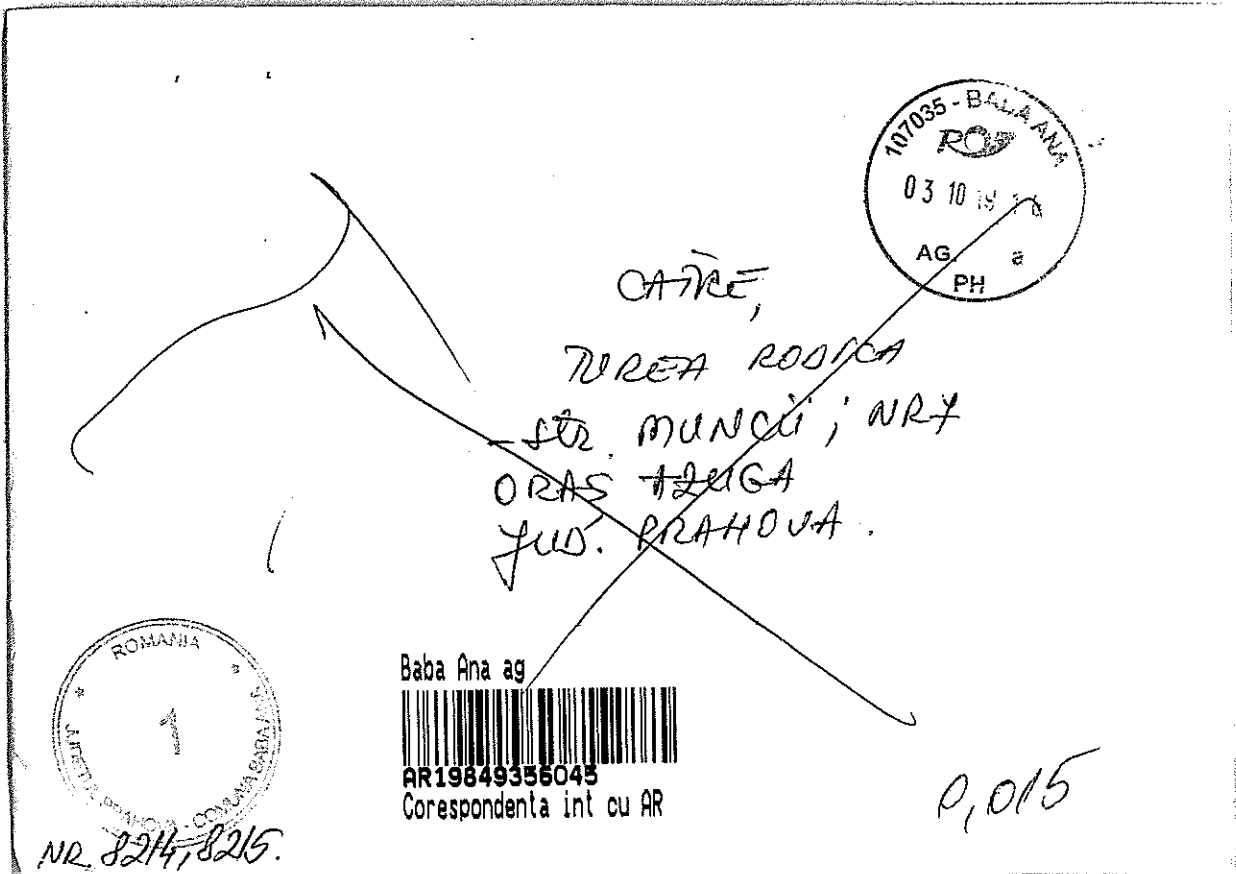 107035 - BABA ANA
03 10 18
AG. a
PH
CATRE,
TUREA RODICA
- STR. MUNCII; NR 7
ORAS AZUGA
JUD. PRAHOVA.
ROMANIA
1
JUDETUL PRAHOVA - COMUNA BABA ANA
Baba Ana ag
AR19849356045
Corespondenta int cu AR
0,015
NR. 8214, 8215.